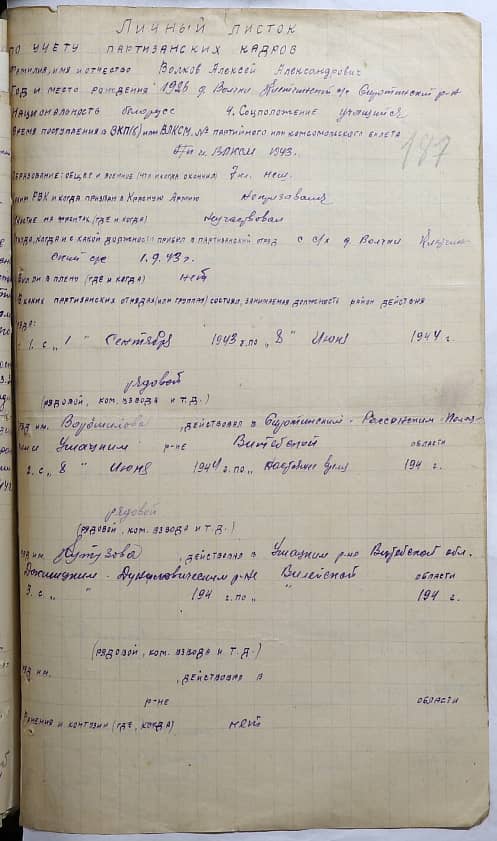 Личный листок
по учету партизанских кадров
Фамилия, имя и отчество Волков Алексей Александрович
Год и место рождения 1926 д. Волчки с/с Сиротинский р-н
Национальность белорусс 4. Соцположение учащийся
Время поступления в ВКП(б) или ВЛКСМ, № партийного или комсомольского билета
ВЛКСМ 1943.
187
Образование: общее и военное (что и когда окончил) 7 кл. неш.
РВК и когда призван в Красную Армию Непризывался
на фронтах (где и когда) Неучаствовал
Откуда, когда и с какой должности прибыл в партизанский отряд с с/х д Волчки
1.9.43 г.
Был ли в плену (где и когда) нет
В каких партизанских отрядах (или группах) состоял, занимаемая должность район действия
1. с „ 1 " Сентября 1943 г. по „ 8 " Июня 1944 г.
рядовой
(рядовой, ком. взвода и т.д.)
им. Ворошилова, действовал в Сиротинским - Россонским -
Ушацким р-не Витебской области
2. с „ 8 " Июня 1944 г. по „ настоящее время 194 г.
рядовой
(рядовой, ком. взвода и т.д.)
им. Кутузова, действовал в Ушацким р-но Витебской обл.
Докшицким - Дуниловическим р-не Вилейской области
3. с „ " 194 г. по „ " 194 г.
(рядовой, ком. взвода и т.д.)
им. , действовал в
р-не области
Ранения и контузии (где, когда) нет